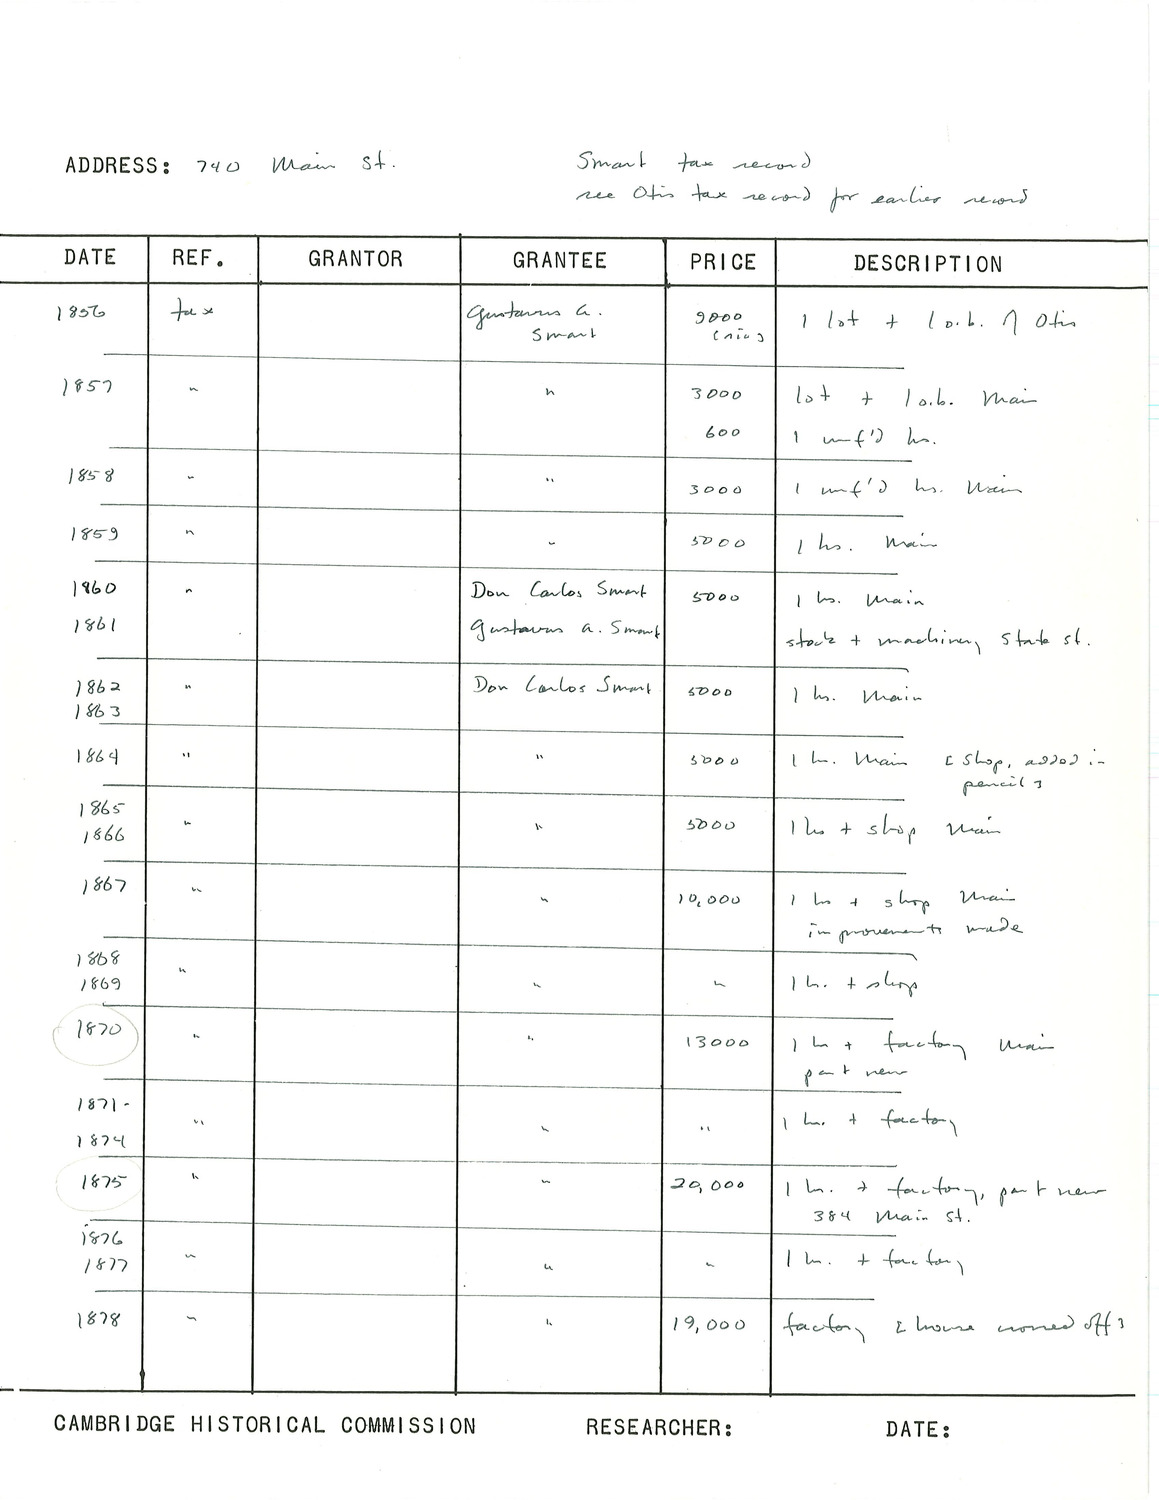 ADDRESS: 740 Main St.
Smart tax record
see Otis tax record for earlier record
DATE REF. GRANTOR GRANTEE PRICE DESCRIPTION
1856 tax Gustavus A. 9000 1 lot + 1 o.b. Otis
Smart (sic)
1857 " " 3000 lot + 1 o.b. Main
600 1 unf'd hs.
1858 " " 3000 1 unf'd hs. Main
1859 " " 5000 1 hs. Main
1860 " Don Carlos Smart 5000 1 hs. Main
1861 Gustavus A. Smart stock + machinery State St.
1862 " Don Carlos Smart 5000 1 hs. Main
1863
1864 " " 5000 1 h. Main [shop, added in
pencil]
1865
1866 " " 5000 1 hs + shop Main
1867 " " 10,000 1 hs + shop Main
improvements made
1868
1869 " " " 1 h. + shop
1870 " " 13000 1 h + factory Main
part new
1871-
1874 " " " 1 h. + factory
1875 " " 20,000 1 h. + factory, part new
384 Main St.
1876
1877 " " " 1 h. + factory
1878 " " 19,000 factory [house crossed off]
CAMBRIDGE HISTORICAL COMMISSION RESEARCHER: DATE: